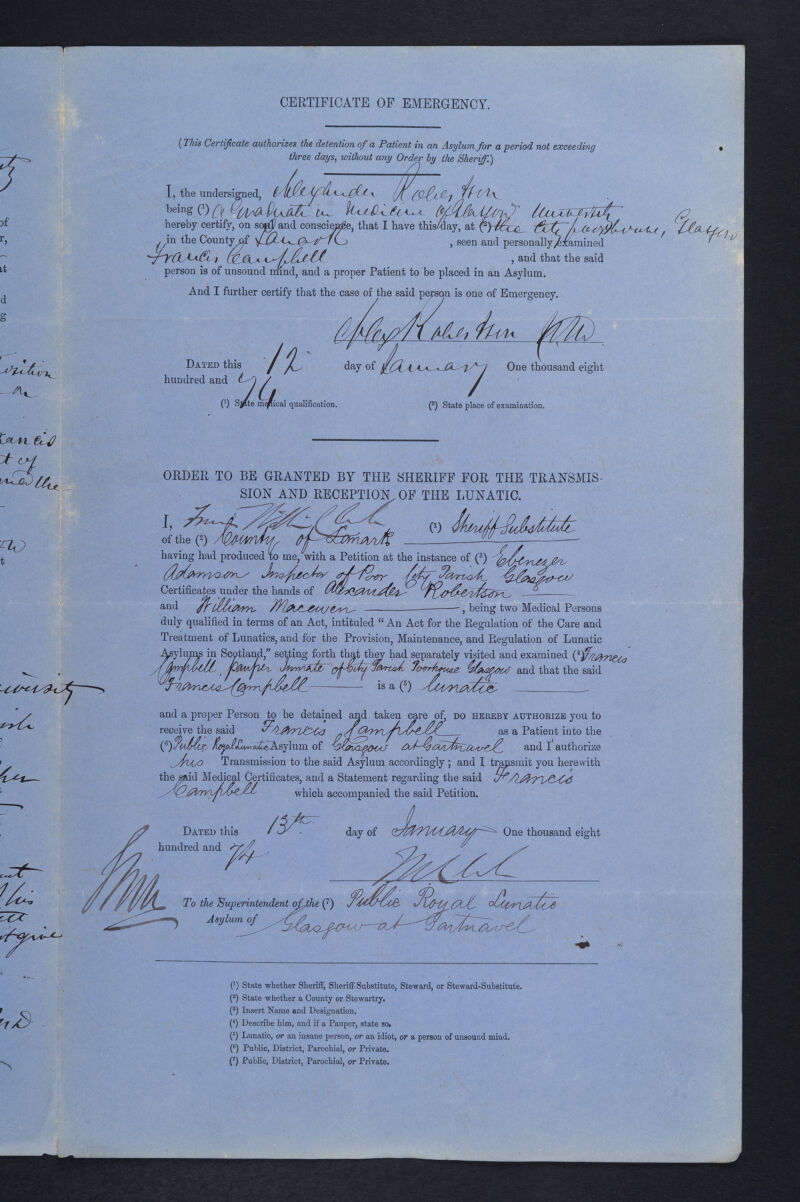 CERTIFICATE OF EMERGENCY.
(This Certificate authorizes the detention of a Patient in an Asylum for a period not exceeding
three days, without any Order by the Sheriff.)
I, the undersigned, Alexander Robertson
being (¹) a Graduate in Medicine of Glasgow University
hereby certify, on soul and conscience, that I have this day, at (²) the City poorhouse, Glasgow
in the County of Lanark, seen and personally examined
Francis Campbell, and that the said
person is of unsound mind, and a proper Patient to be placed in an Asylum.
And I further certify that the case of the said person is one of Emergency.
Alex Robertson M.D.
DATED this 12 day of January One thousand eight
hundred and 74
(¹) State medical qualification. (²) State place of examination.
ORDER TO BE GRANTED BY THE SHERIFF FOR THE TRANSMIS-
SION AND RECEPTION OF THE LUNATIC.
I, (¹) Sheriff Substitute
of the (²) County of Lanark
having had produced to me, with a Petition at the instance of (³) Ebenezer
Adamson Inspector of Poor City Parish Glasgow
Certificates under the hands of Alexander Robertson
and William Macewen, being two Medical Persons
duly qualified in terms of an Act, intituled "An Act for the Regulation of the Care and
Treatment of Lunatics, and for the Provision, Maintenance, and Regulation of Lunatic
Asylums in Scotland," setting forth that they had separately visited and examined (⁴) Francis
Campbell, pauper Inmate of City Parish Poorhouse Glasgow and that the said
Francis Campbell is a (⁵) lunatic
and a proper Person to be detained and taken care of, DO HEREBY AUTHORIZE you to
receive the said Francis Campbell as a Patient into the
(⁶) Public Royal Lunatic Asylum of Glasgow at Gartnavel and I authorize
his Transmission to the said Asylum accordingly; and I transmit you herewith
the said Medical Certificates, and a Statement regarding the said Francis
Campbell which accompanied the said Petition.
DATED this 13th day of January One thousand eight
hundred and 74
To the Superintendent of the (⁷) Public Royal Lunatic
Asylum of Glasgow at Gartnavel
(¹) State whether Sheriff, Sheriff-Substitute, Steward, or Steward-Substitute.
(²) State whether a County or Stewartry.
(³) Insert Name and Designation.
(⁴) Describe him, and if a Pauper, state so.
(⁵) Lunatic, or an insane person, or an idiot, or a person of unsound mind.
(⁶) Public, District, Parochial, or Private.
(⁷) Public, District, Parochial, or Private.